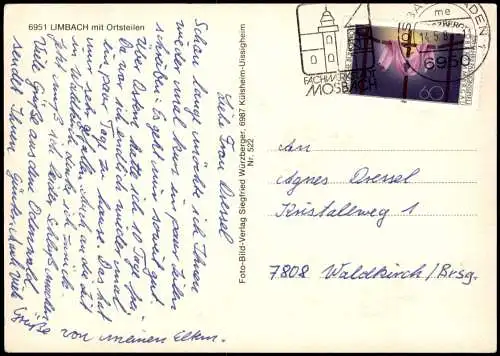 6951 LIMBACH mit Ortsteilen
Liebe Frau Dressel
Schon lange möchte ich Ihnen
wieder mal kurz ein paar Zeilen
schreiben. Es geht uns soweit gut.
Über Ostern hatte ich 10 Tage frei.
Da war ich endlich wieder mal
ein paar Tage zu Hause. Das hat
mir sehr gefallen. Auch an die Zeit
in Waldkirch denke ich zurück.
Viele Grüße aus dem Odenwald
sendet Ihnen
viele Grüße von meinen Eltern.
Foto-Bild-Verlag Siegfried Würzberger, 6987 Külsheim-Uissigheim
Nr. 522
FACHWERKSTADT
MOSBACH
me
6950
60
An
Agnes Dressel
Kristallweg 1
7808 Waldkirch/Brsg.